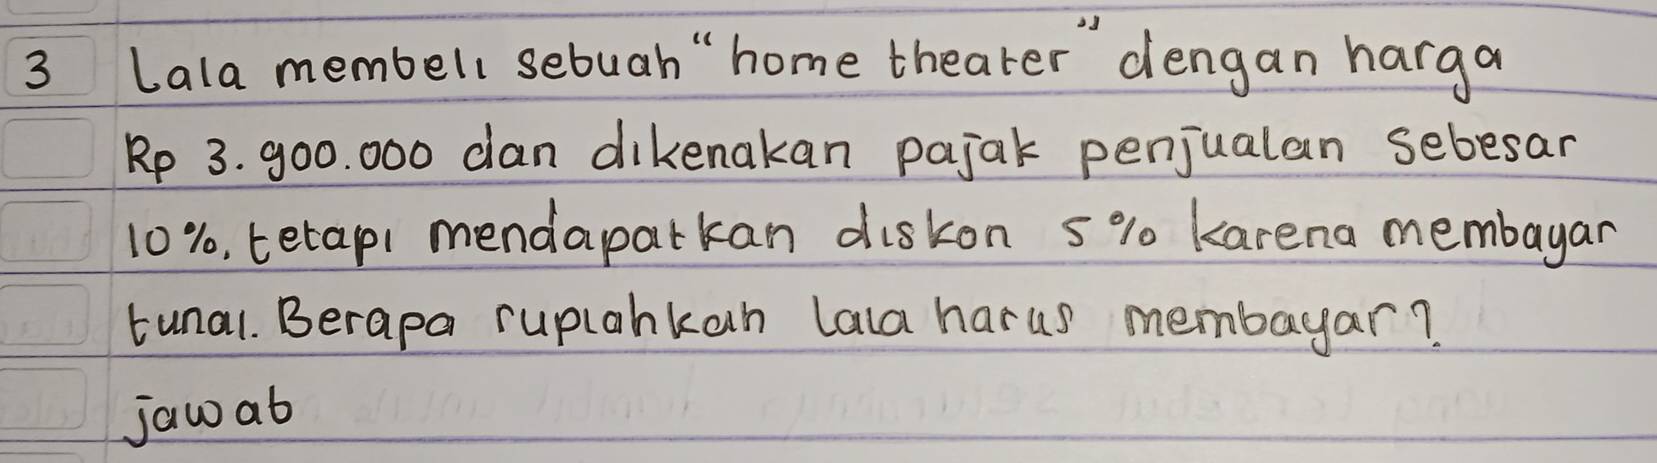 3 Lala membeli sebuah "home theater" dengan harga
Rp 3.900.000 dan dikenakan pajak penjualan sebesar
10%, tetapi mendapatkan diskon 5% karena membayar
tunai. Berapa rupiahkah Lala harus membayar?
jawab